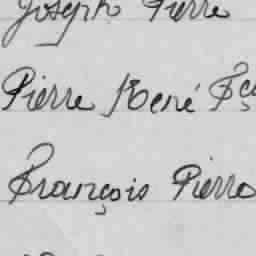 Joseph Pierre
Pierre René Fçs
François Pierre